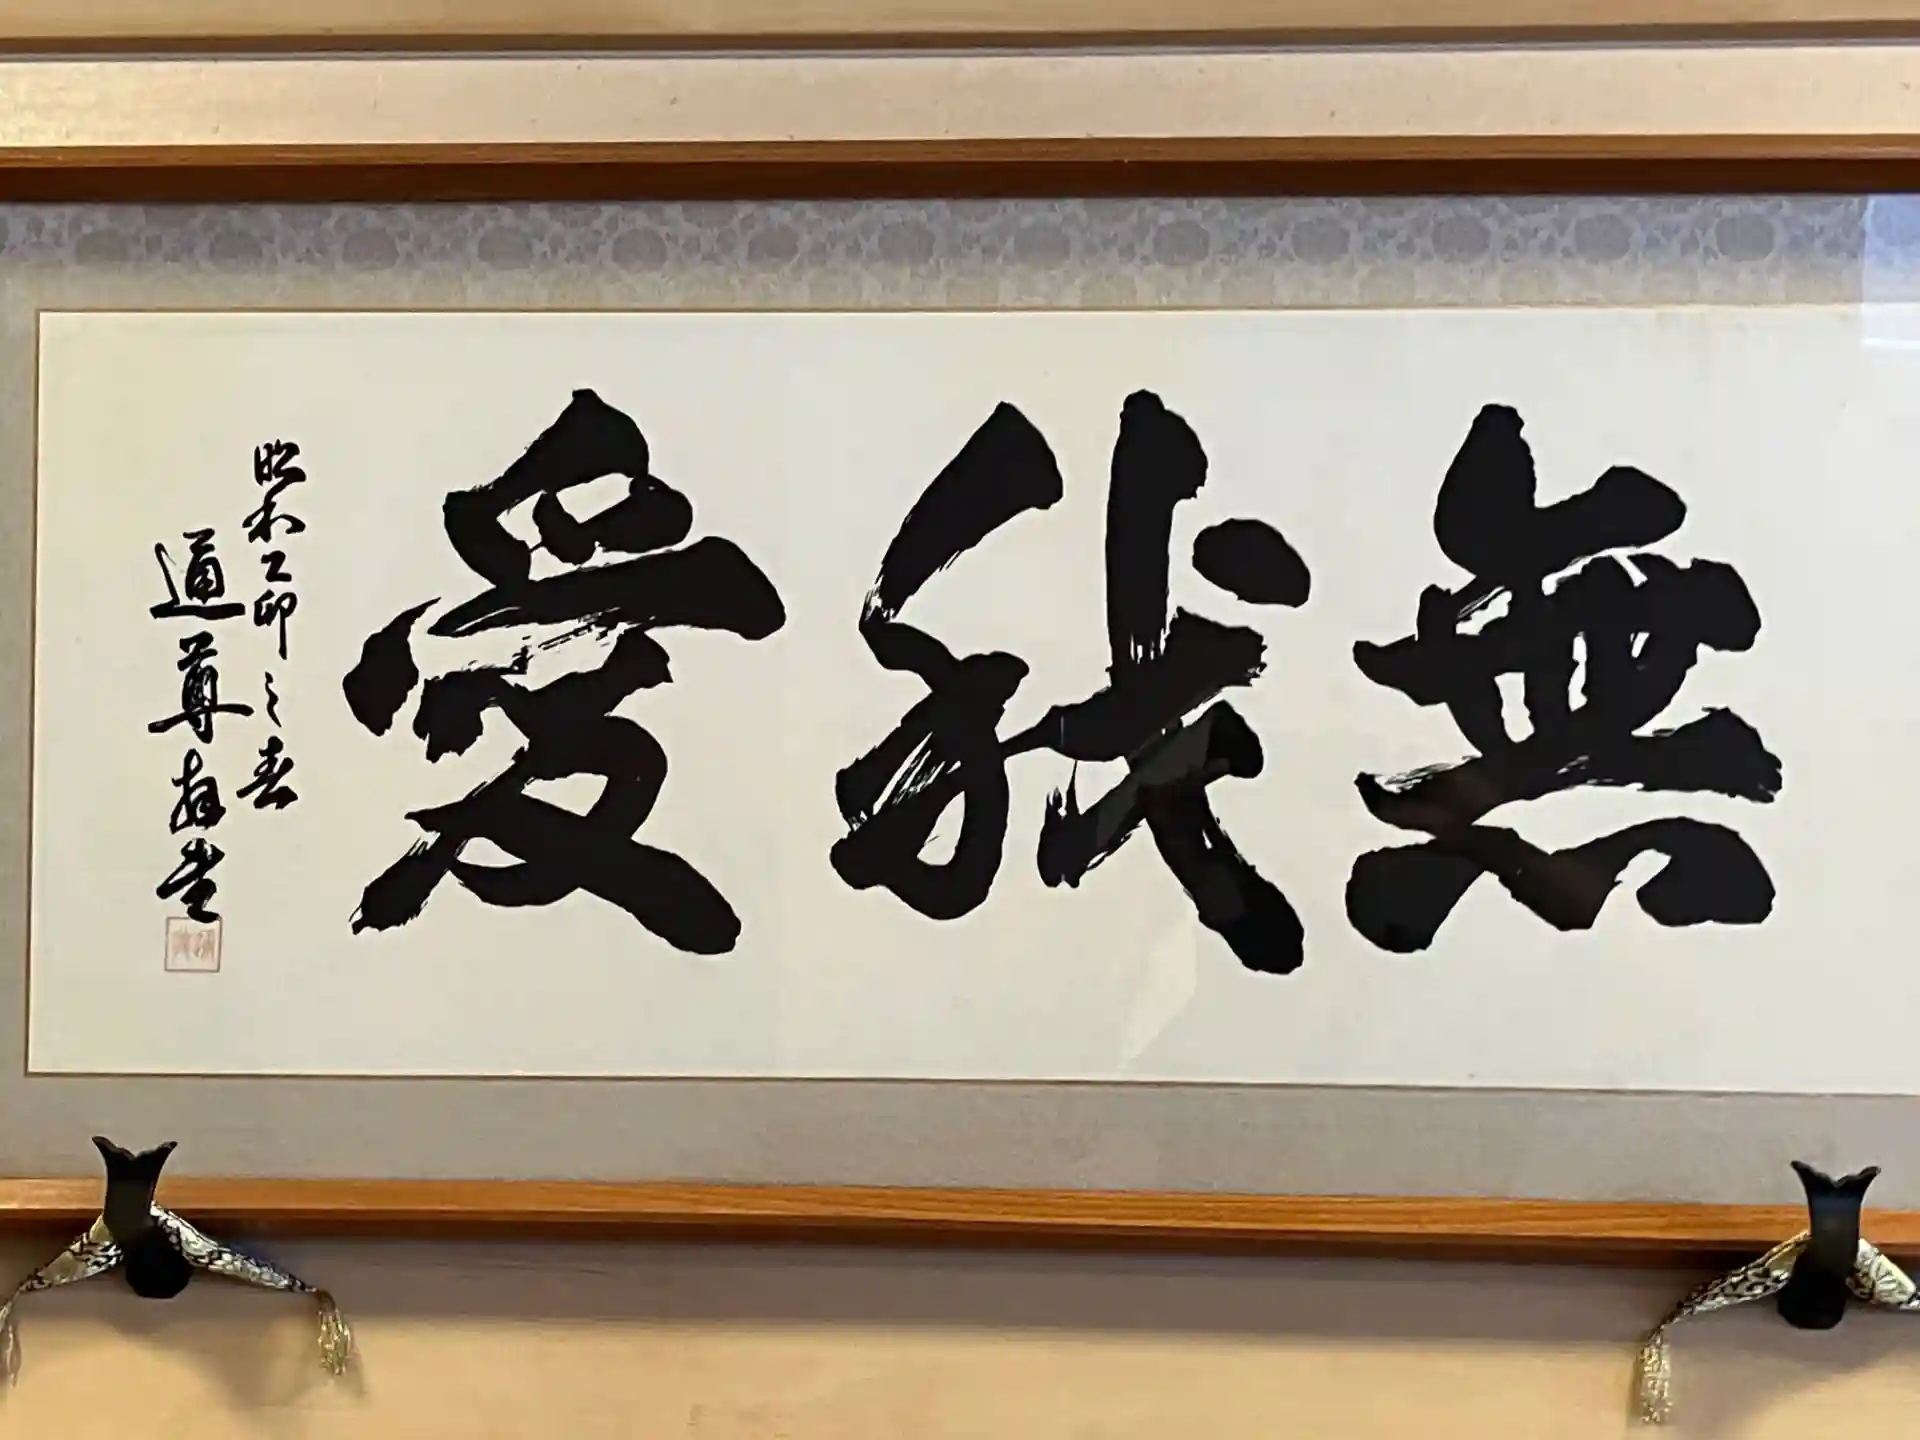 無我愛
昭和乙卯之春
道尊